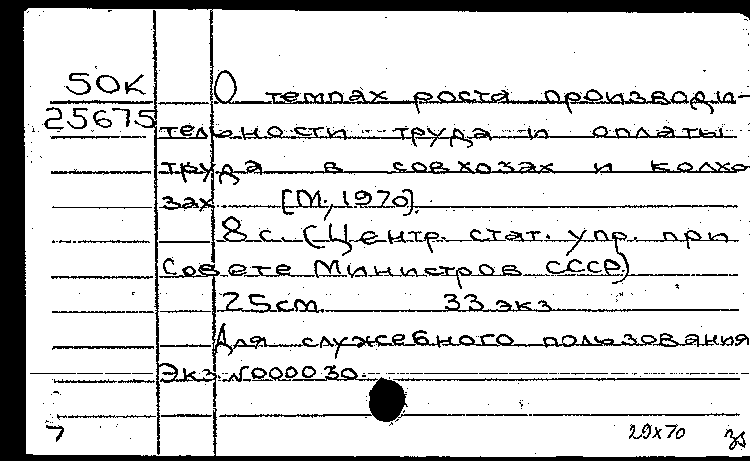 50К О темпах роста производи-
25675 тельности труда и оплаты
труда в совхозах и колхо
зах [М., 1970].
8 с. (Центр. стат. упр. при
Совете Министров СССР)
25см 33 экз
Для служебного пользования
Экз. №000030.
7 29х70